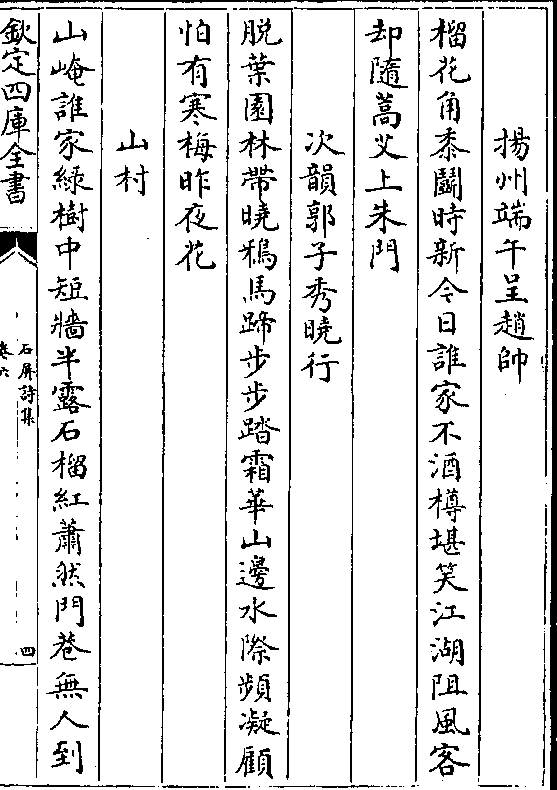 揚州端午呈趙帥
榴花角黍鬬時新今日誰家不酒樽堪笑江湖阻風客
却隨蒿艾上朱門
次韻郭子秀曉行
脱葉園林帶曉鵶馬蹄步步踏霜華山邊水際頻凝顧
怕有寒梅昨夜花
山村
山崦誰家綠樹中短牆半露石榴紅蕭然門巷無人到
欽定四庫全書
石屏詩集
卷六
四